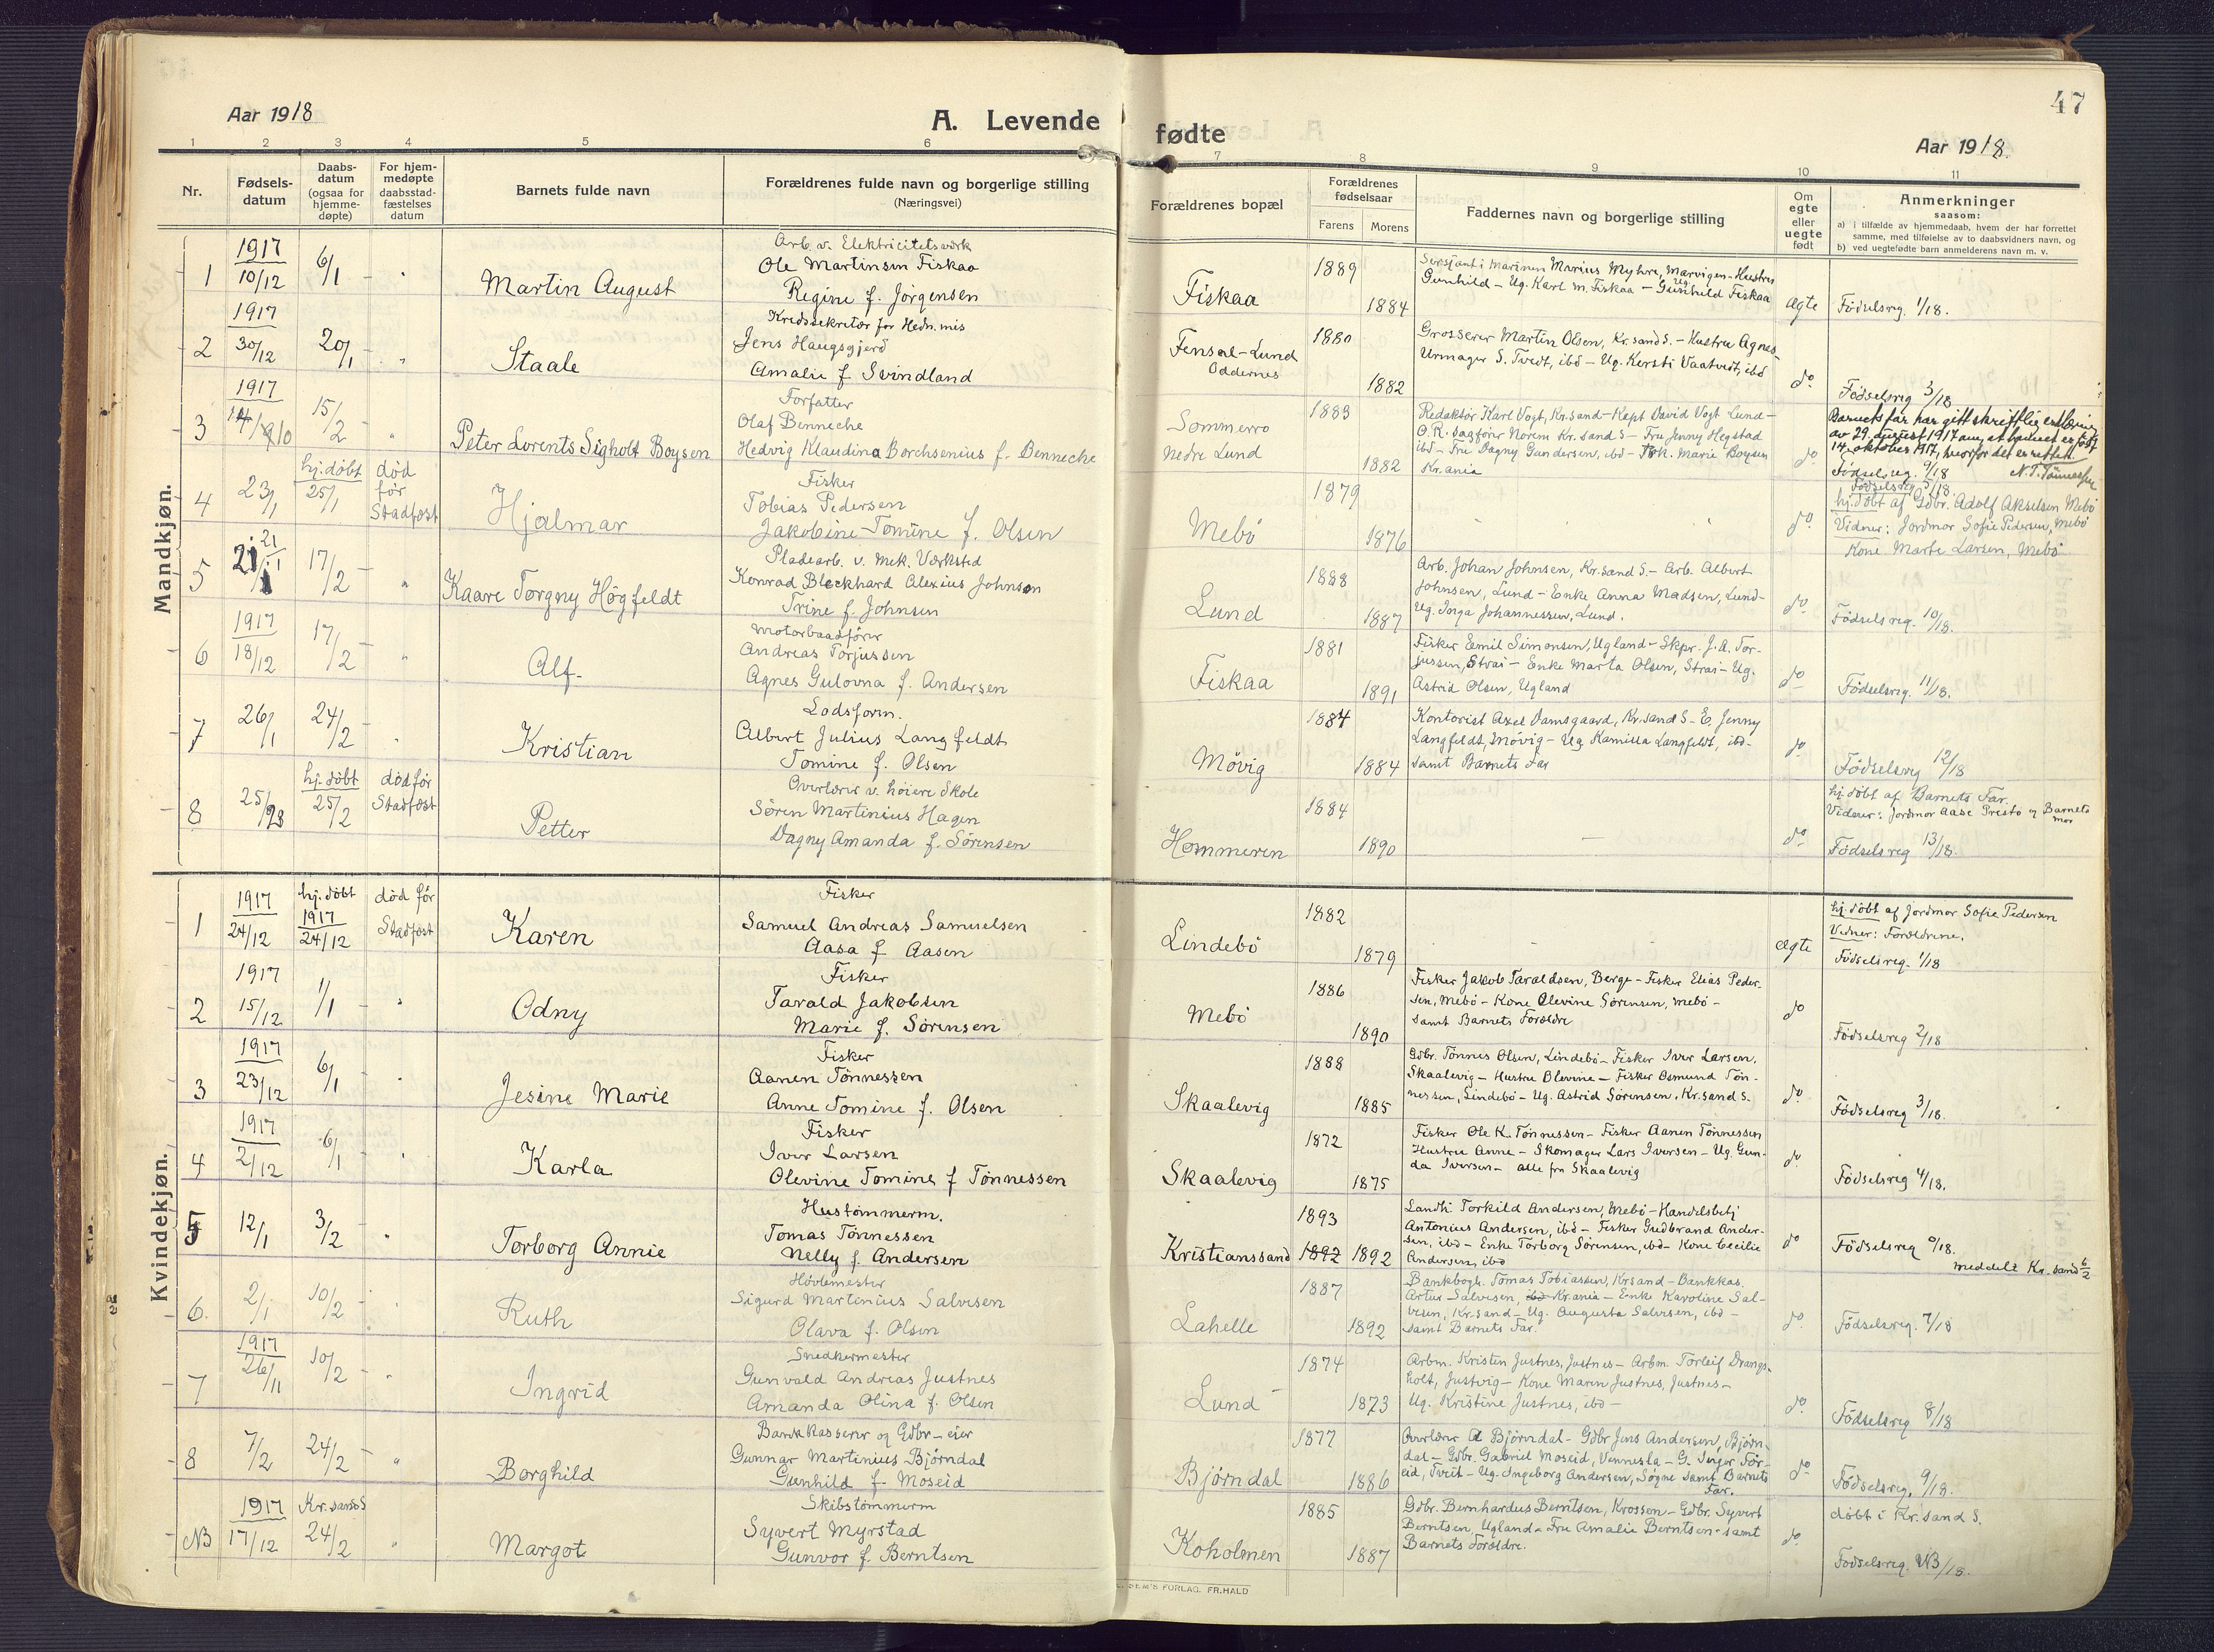 47
Aar 1918
A. Levende
fødte
Aar 1918.
1 2 3 4 5 6
7 8 9 10 11
Nr.
Fødsels-
datum
Daabs-
datum
(ogsaa for
hjemme-
døpte)
For hjem-
medøpte
daabsstad-
fæstelses
datum
Barnets fulde navn
Forældrenes fulde navn og borgerlige stilling
(Næringsvei)
Forældrenes bopæl
Forældrenes
fødselsaar
Farens Morens
Faddernes navn og borgerlige stilling
Om
egte
eller
uegte
født
Anmerkninger
saasom:
a) i tilfælde av hjemmedaab, hvem der har forrettet
samme, med tilføielse av to daabsvidners navn, og
b) ved uegtefødte barn anmelderens navn m. v.
Mandkjøn.
1
1917
10/12
6/1
Martin August
Arb. v. Elektricitetsværk
Ole Martinsen Fiskaa
Regine f. Jørgensen
Fiskaa
1889
1884
Sersjant i Marinen Marius Myhre, Marvigen - Hustru
Gunhild - Ug. Karl M. Fiskaa - Ug. Gunhild Fiskaa
ægte
Fødselsreg. 1/18.
2
1917
30/12
20/1
"
Staale
Kredssekretær for Hedn. mis
Jens Haugsgjerd
Amalie f Svindland
Fensal-Lund
Oddernes
1880
1882
Grosserer Martin Olsen, Kr.sand S. - Hustru Agnes
Urmager S. Tvedt, ibd - Ug. Kersti Vaatvedt, ibd
do
Fødselsreg 3/18
3
1917
14/10
15/2
"
Peter Lorents Sigholt Boysen
Forfatter
Olaf Benneche
Hedvig Klaudina Borchsenius f. Benneche
Sommerro
Nedre Lund
1883
1882
Redaktør Karl Vogt, Kr.sand - Kapt David Vogt Lund -
O.R. sagfører Norem Kr.sand S - Fru Jenny Hegstad
ibd - Fru Dagny Gundersen, ibd - Frk. Marie Boysen
Kr.ania
do
Barnets far har gitt skriftlig erklæring
av 29. august 1917 om, at barnet er født
14. oktober 1917, hvorfor det er rettet.
Fødselsreg. 9/18
4
23/1
hj. døbt
25/1
død
før
Stadfæst
Hjalmar
Fisker
Tobias Pedersen
Jakobine Tomine f. Olsen
Mebø
1879
1876
do
Fødselsreg. 5/18.
hj. døbt af Gdbr. Adolf Akselsen Mebø
Vidner: Jordmor Sofie Pedersen, Mebø
Kone Marte Larsen, Mebø
5
21/1
17/2
"
Kaare Torgny Høgfeldt
Pladearb. v. Mek. Værksted
Konrad Bleckhard Alexius Johnsen
Trine f. Johnsen
Lund
1888
1887
Arb. Johan Johnsen, Kr.sand S. - Arb. Albert
Johnsen, Lund - Enke Anna Madsen, Lund -
Ug. Inga Johannessen, Lund.
do
Fødselsreg. 10/18.
6
1917
18/12
17/2
"
Alf
Motorbaadfører
Andreas Torjussen
Agnes Gulovna f. Andersen
Fiskaa
1881
1891
Fisker Emil Simonsen, Ugland - Skpr. J. A. Tor-
jussen, Strai - Enke Marta Olsen, Strai - Ug.
Astrid Olsen, Ugland
do
Fødselsreg. 11/18.
7
26/1
24/2
"
Kristian
Lodsform.
Albert Julius Langfeldt
Tomine f. Olsen
Møvig
1884
1884
Kontorist Axel Damsgaard, Kr.sand S - E. Jenny
Langfeldt, Møvig - Ug Kamilla Langfeldt, ibd -
samt Barnets Far
do
Fødselsreg 12/18
8
25/2
hj. døbt
25/2
død før
Stadfæst
Petter
Overlærer v. høiere Skole
Søren Martinius Hagen
Dagny Amanda f. Sørensen
Hommeren
1884
1890
-
do
hj. døbt af Barnets Far.
Vidner: Jordmor Aase Presto og Barnets
mor
Fødselsreg 13/18.
Kvindekjøn.
1
1917
24/12
hj. døbt
1917
24/12
død før
Stadfæst
Karen
Fisker
Samuel Andreas Samuelsen
Aasa f Aasen
Lindebø
1882
1879
ægte
hj. døbt af Jordmor Sofie Pedersen
Vidner: Forældrene.
Fødselsreg. 1/18
2
1917
15/12
1/1
"
Odny
Fisker
Tarald Jakobsen
Marie f. Sørensen
Mebø
1886
1890
Fisker Jakob Taraldsen, Berge - Fisker Elias Peder-
sen, Mebø - Kone Olevine Sørensen, Mebø -
samt Barnets Forældre
do
Fødselsreg 2/18
3
1917
23/12
6/1
Jesine Marie
Fisker
Aanen Tønnessen
Anne Tomine f. Olsen
Skaalevig
1888
1885
Gdbr. Tønnes Olsen, Lindebø - Fisker Iver Larsen,
Skaalevig - Hustru Olevine - Fisker Osmund Tøn-
nessen, Lindebø - Ug. Astrid Sørensen, Kr.sand S.
do
Fødselsreg 3/18.
4
1917
2/12
6/1
Karla
Fisker
Iver Larsen
Olevine Tomine f Tønnessen
Skaalevig
1872
1875
Fisker Ole K. Tønnessen - Fisker Aanen Tønnessen
Hustru Anne - Skomager Lars Iversen - Ug. Gun-
da Iversen - alle fra Skaalevig
do
Fødselsreg 4/18.
5
12/1
3/2
"
Torborg Annie
Hustømmerm.
Tomas Tønnessen
Nelly f. Andersen
Kristianssand
1893
1892 1892
Landh. Torkild Andersen, Mebø - Handelsbetj
Antonius Andersen, ibd - Fisker Gudbrand Ander-
sen, ibd - Enke Torborg Sørensen, ibd - Kone Cecilie
Andersen, ibd
do
Fødselsreg /18.
meddelt Kr.sand 6/2
6.
2/1
10/2
Ruth
Høvlemester
Sigurd Martinius Salvesen
Olava f. Olsen
Lahelle
1887
1892
Bankbogh. Tomas Tobiassen, Kr.sand - Bankkas.
Artur Salvesen, ibd Kr.ania - Enke Karoline Sal-
vesen, Kr.sand - Ug. Augusta Salvesen, ibd -
samt Barnets Far.
do
Fødselsreg. 7/18
7
1917
26/11
10/2
"
Ingrid
Snedkermester
Gunvald Andreas Justnes
Amanda Olina f. Olsen
Lund
1874
1873
Arbm. Kristen Justnes, Justnes - Arbm. Torleif Drangs-
holt, Justvig - Kone Maren Justnes, Justnes -
Ug. Kristine Justnes, ibd -
do
Fødselsreg. 8/18
8
7/2
24/2
"
Borghild
Bankkasserer og Gdbr-eier
Gunnar Martinius Bjørndal
Gunhild f. Moseid
Bjørndal
1877
1886
Overlærer A Bjørndal - Gdbr Jens Andersen, Bjørn-
dal - Gdbr. Gabriel Moseid, Vennesla - G. Inger For-
eid, Tveit - Ug. Ingeborg Andersen, Søgne samt Barnets
Far.
do
Fødselsreg. 9/18.
NB
1917
17/12
Kr.sand S
24/2
"
Margot
Skibstømmerm
Syvert Myrstad
Gunvor f. Berntsen
Koholmen
1885
1887
Gdbr. Bernhardus Berntsen, Krossen - Gdbr. Syvert
Berntsen, Ugland - Fru Amalie Berntsen - samt
Barnets Forældre.
do.
døbt i Kr.sand S.
Fødselsreg. NB/18.
FORLAG. FR. HALD